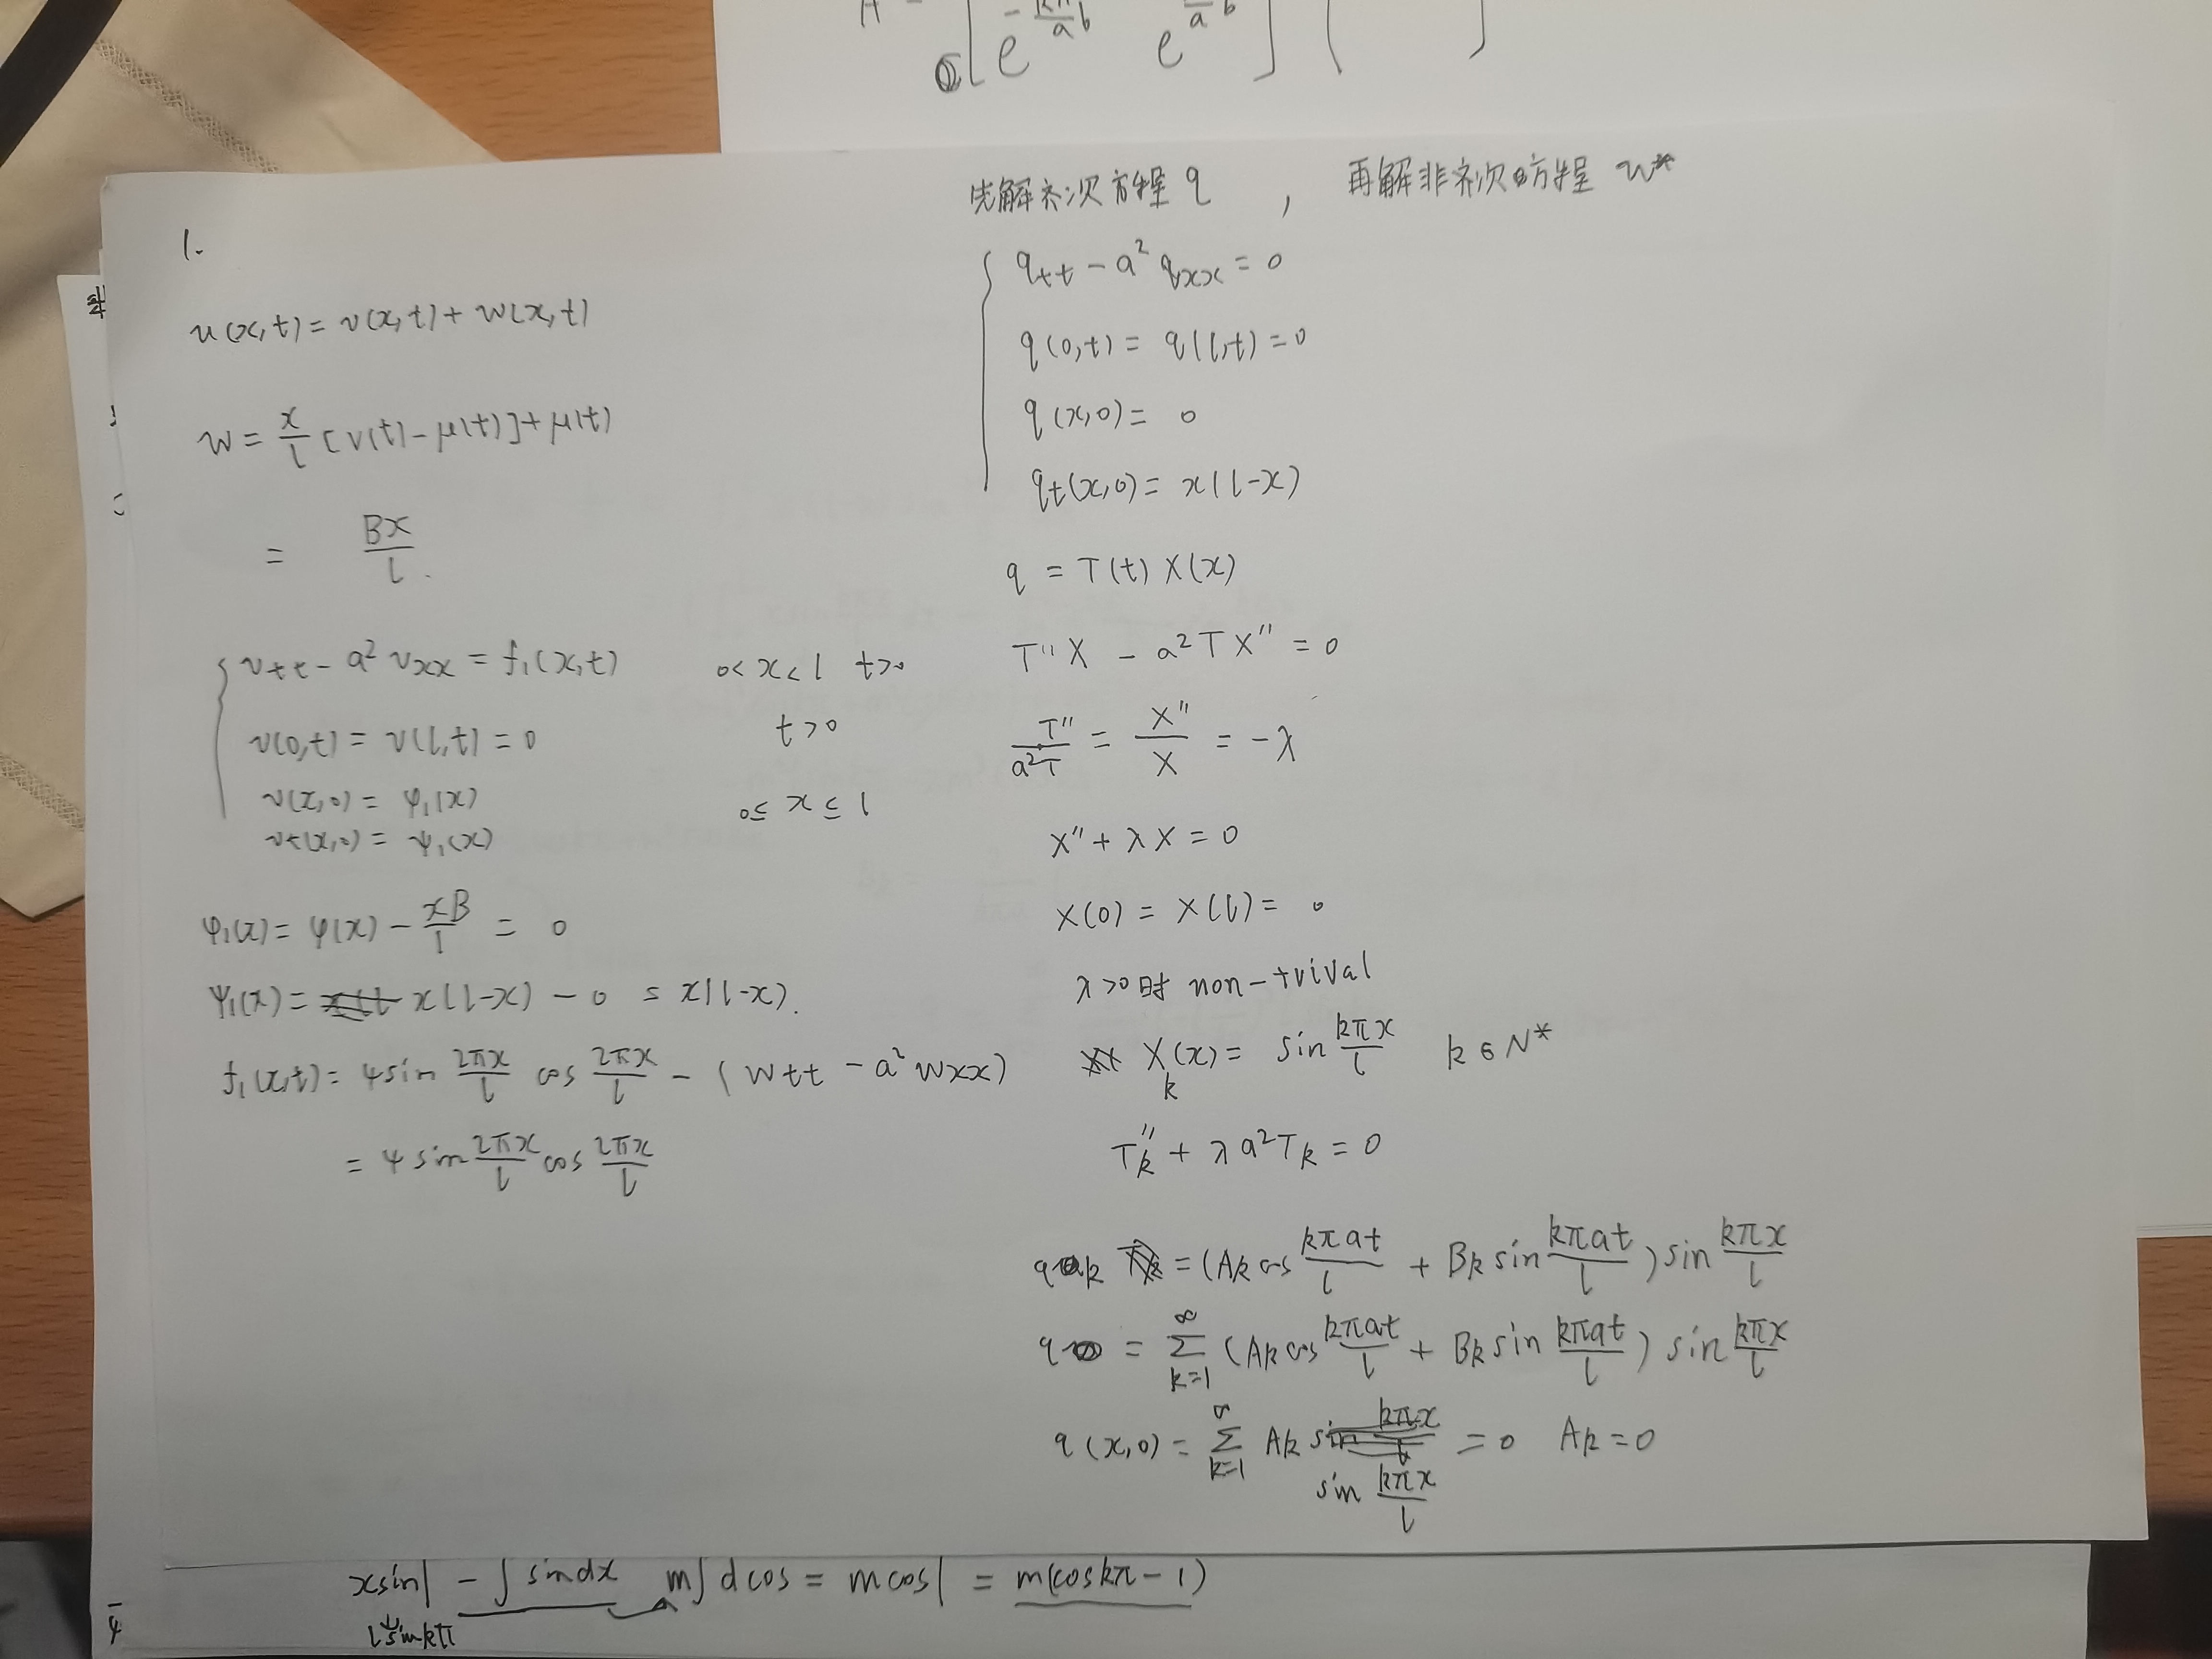 1.
u(x,t) = v(x,t) + w(x,t)
w = x/l [ν(t) - μ(t)] + μ(t)
= Bx/l.
v_tt - a² v_xx = f₁(x,t) 0<x<l t>0
v(0,t) = v(l,t) = 0 t>0
v(x,0) = φ₁(x)
v_t(x,0) = ψ₁(x) 0≤x≤l
φ₁(x) = φ(x) - xB/l = 0
ψ₁(x) = x(l-x) - 0 = x(l-x).
f₁(x,t) = 4sin 2πx/l cos 2πx/l - (w_tt - a² w_xx)
= 4 sin 2πx/l cos 2πx/l
先解齐次方程 q , 再解非齐次方程 w*
q_tt - a² q_xx = 0
q(0,t) = q(l,t) = 0
q(x,0) = 0
q_t(x,0) = x(l-x)
q = T(t) X(x)
T''X - a²TX'' = 0
T''/a²T = X''/X = -λ
X'' + λX = 0
X(0) = X(l) = 0
λ>0时 non-trvival
X_k(x) = sin kπx/l k∈N*
T_k'' + λa²T_k = 0
q_k = (A_k cos kπat/l + B_k sin kπat/l) sin kπx/l
q = Σ_{k=1}^∞ (A_k cos kπat/l + B_k sin kπat/l) sin kπx/l
q(x,0) = Σ_{k=1}^∞ A_k sin kπx/l = 0 A_k = 0
xsin| - ∫sindx m∫dcos = mcos| = m(coskπ - 1)
lsinkπ